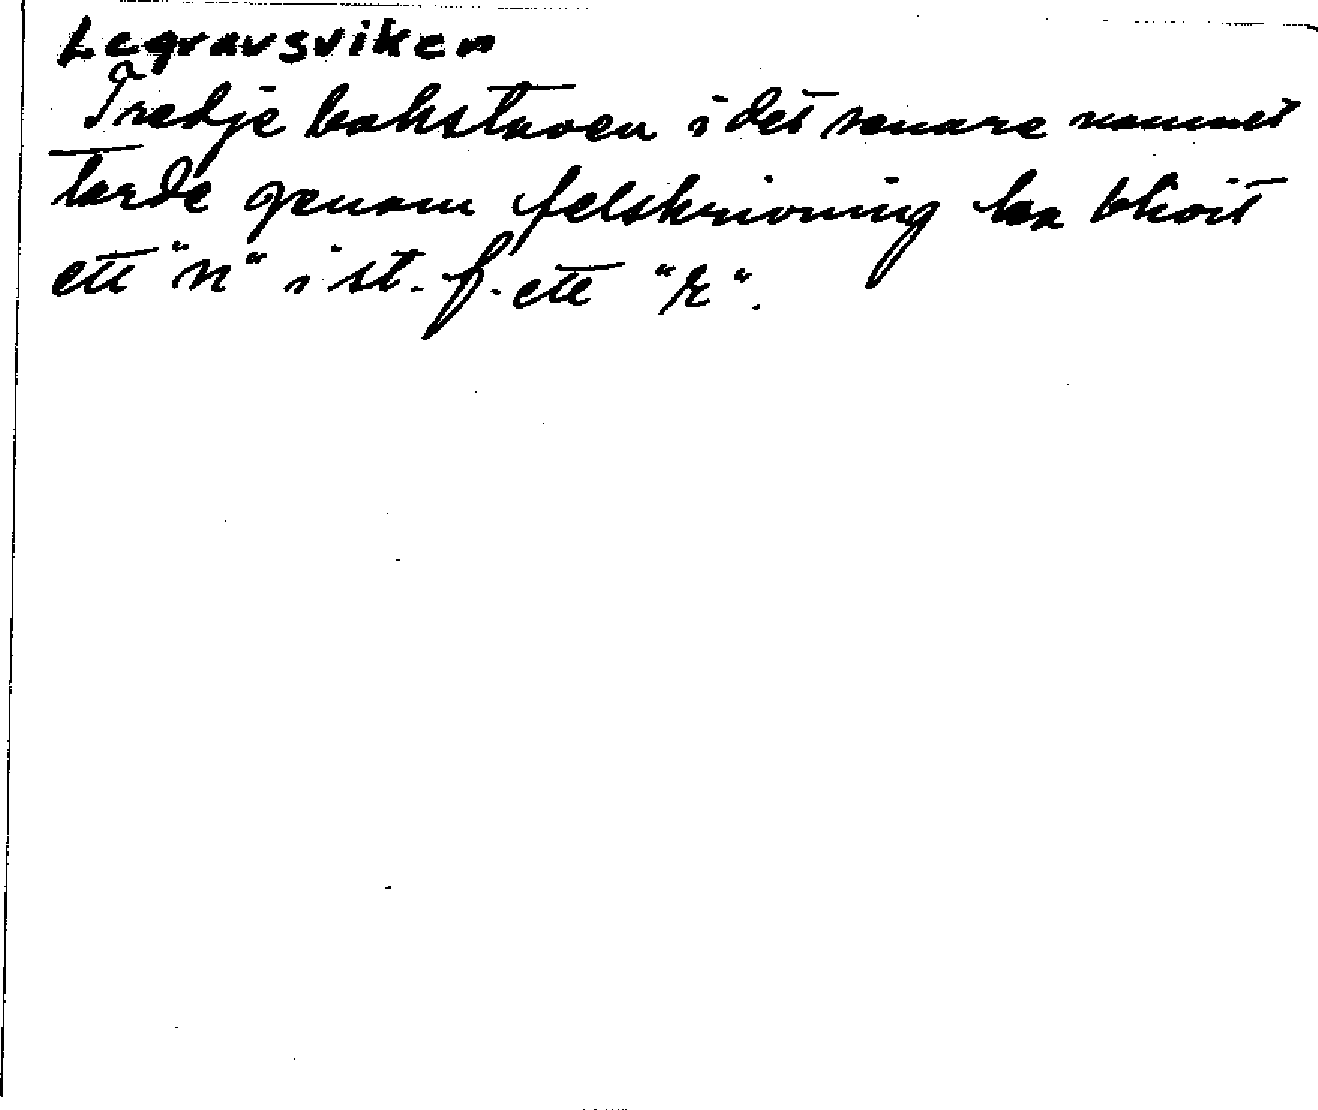 Legravsviken
Tredje bokstaven i det senare namnet
torde genom felskrivning ha blivit
ett "n" i st. f. ett "r".